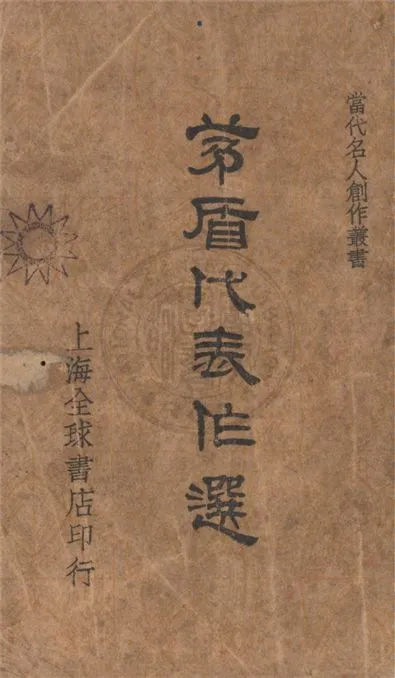 當代名人創作叢書
茅盾代表作選
上海全球書店印行